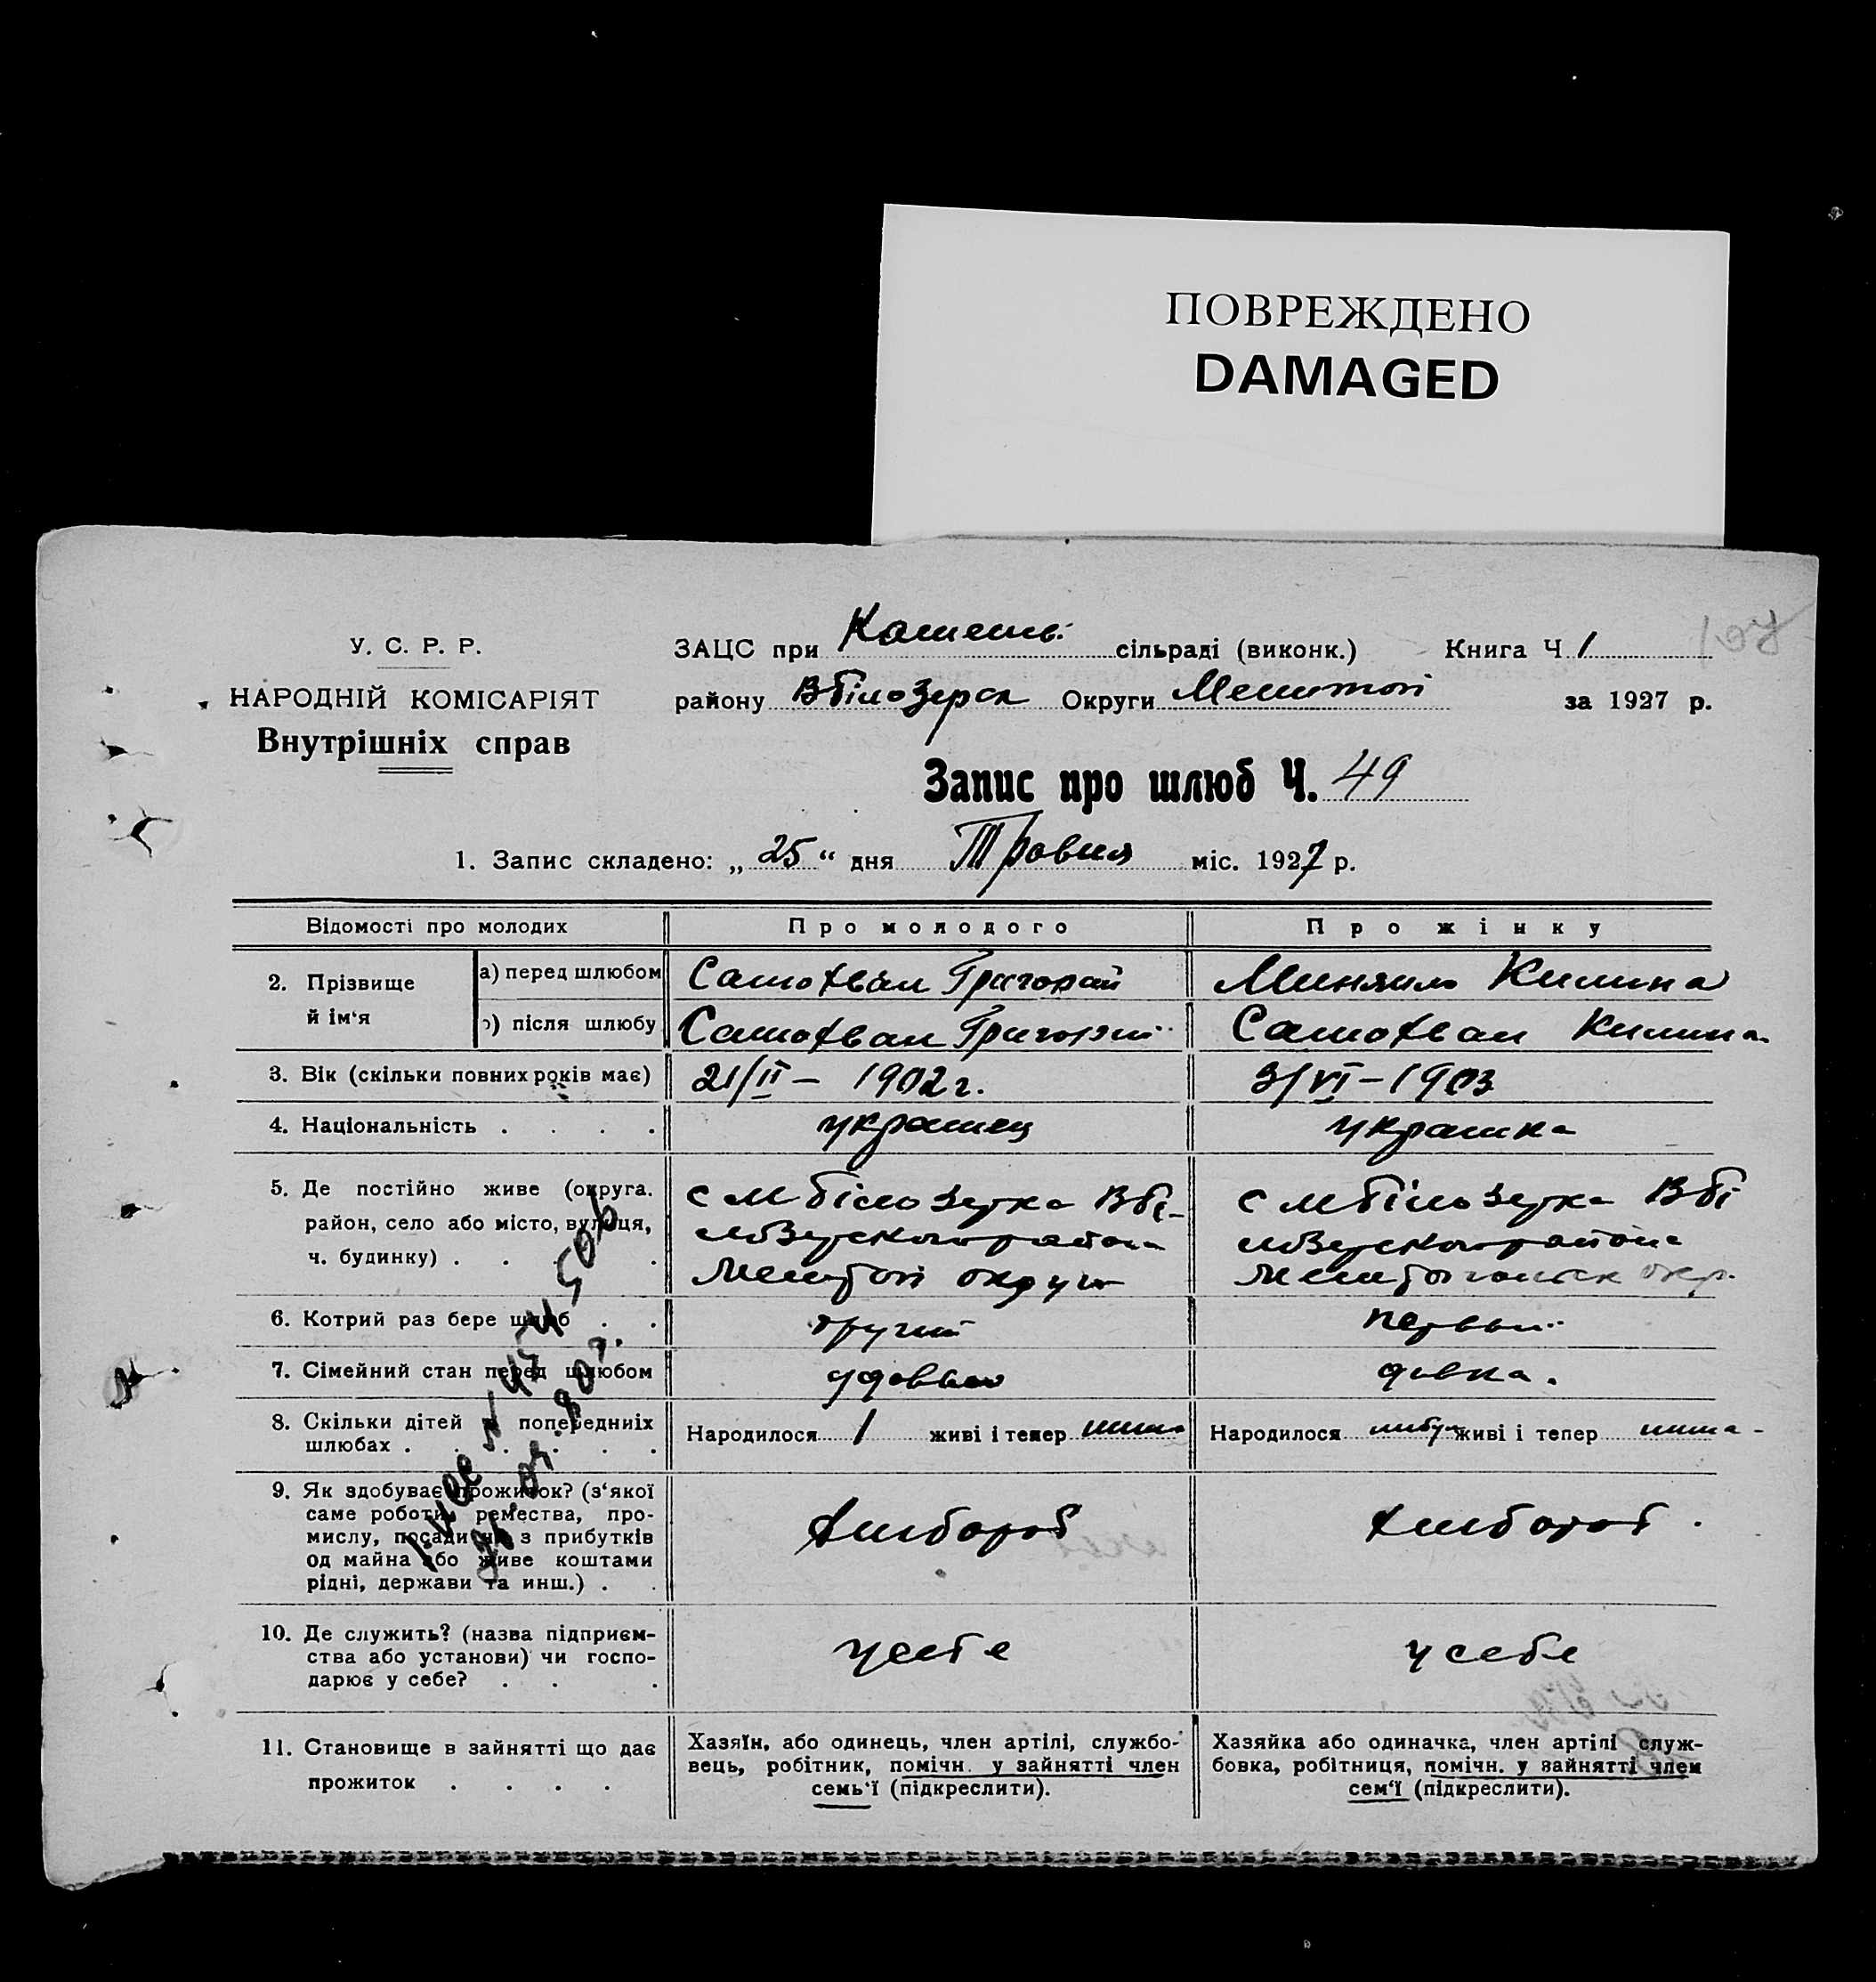 ПОВРЕЖДЕНО
DAMAGED
У. С. Р. Р.
НАРОДНІЙ КОМІСАРІЯТ
Внутрішніх справ
ЗАЦС при сільраді (виконк.) Книга Ч 1
району Вбілозерск Округи Мелитоп за 1927 р.
Запис про шлюб Ч. 49
1. Запис складено: „ 25 “ дня Травня міс. 1927 р.
Відомості про молодих
Про молодого
Про жінку
2. Прізвище й ім‘я
а) перед шлюбом
Григорий
Миняило Килина
б) після шлюбу
Григорий
Килина
3. Вік (скільки повних років має)
21/II – 1902 г.
3/VI – 1903
4. Національність . . . .
украинец
украинка
5. Де постійно живе (округа.
район, село або місто, вулиця,
ч. будинку) . . .
с мбілозерка Вбі-
лозерского района
Мелитоп округи
с мбілозерка Вбі
лозерского района
окр.
6. Котрий раз бере шлюб . .
другий
первый
7. Сімейний стан перед шлюбом
девка.
8. Скільки дітей в попередниіх
шлюбах . . . . . .
Народилося 1 живі і тепер нима
Народилося живі і тепер нима -
9. Як здобуває прожиток? (з‘якої
саме роботи, ремества, про-
мислу, посади чи з прибутків
од майна або живе коштами
рідні, держави та инш.) . .
хлибороб
хлибороб .
10. Де служить? (назва підприєм-
ства або установи) чи госпо-
дарює у себе? . . .
у себе
у себе
11. Становище в зайнятті що дає
прожиток . . . .
Хазяїн, або одинець, член артілі, службо-
вець, робітник, помічн. у зайнятті член
семь‘ї (підкреслити).
Хазяйка або одиначка, член артілі служ-
бовка, робітниця, помічн. у зайнятті член
сем‘ї (підкреслити).